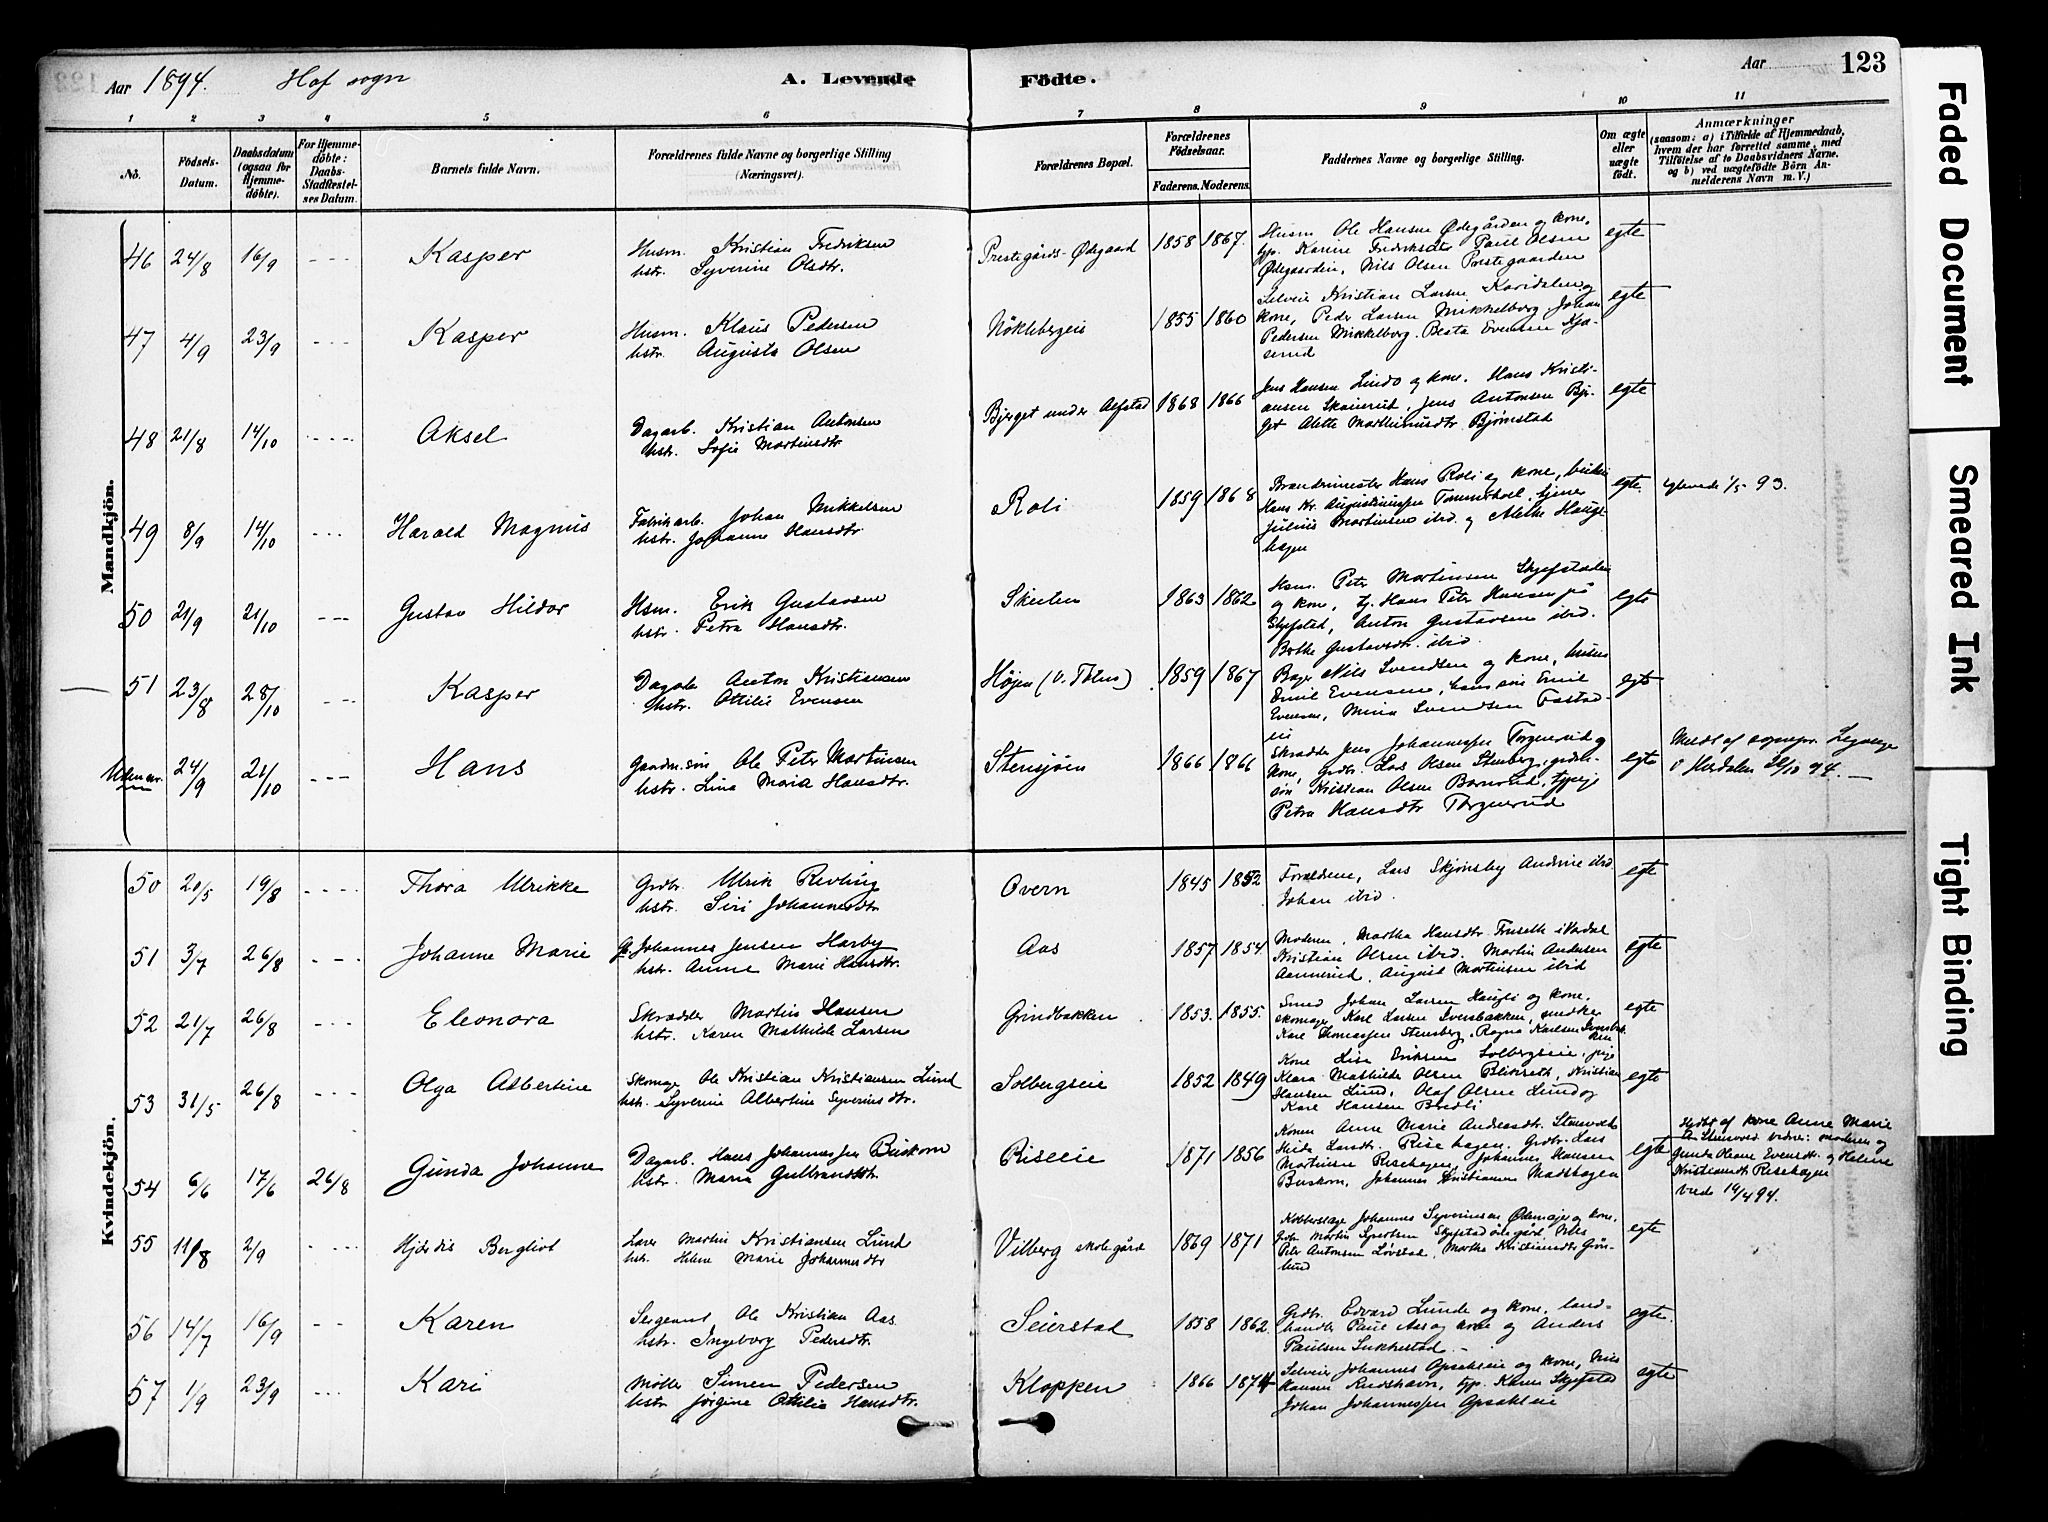 Aar 1894. Hof sogn A. Levende Födte. Aar 123
1 2 3 4 5 6 7 8 9 10 11
No.
Födsels-Datum.
Daabsdatum (ogsaa for Hjemmedöbte).
For Hjemmedöbte: Daabs-Stadfæstelses Datum.
Barnets fulde Navn.
Forældrenes fulde Navne og borgerlige Stilling (Næringsvei).
Forældrenes Bopæl.
Forældrenes Födselsaar.
Faderens. Moderens.
Faddernes Navne og borgerlige Stilling.
Om ægte eller uægte födt.
Anmærkninger
(saasom: a) i Tilfælde af Hjemmedaab,
hvem der har forrettet samme, med
Tilföielse af to Daabsvidners Navne,
og b) ved uægtefödte Börn An-
melderens Navn m. V.)
Mandkjön.
46 24/8 16/9 - - - Kasper
Husm. Kristian Fredriksen
hstr. Syverine Olsdtr.
Prestegårds-Ødegaard 1858 1867.
Husm. Ole Hansen Ødegården og kone,
typ. Karine Fredriksdtr Paul Olsen
Ødegaarden, Nils Olsen Prestegaarden
egte
47 4/9 23/9 - - - Kasper
Husm. Klaus Pedersen
hstr. Augusta Olsen
Nöklebergeie 1855 1860
Selveier Kristian Larsen Karidalen og
kone, Peder Larsen Mikkelborg Johan
Pedersen Mikkelborg. Beata Evensen
egte
48 21/8 14/10 - - - Aksel
Dagarb. Kristian Antonsen
hstr. Sofie Martinsdtr
Bjerget under Alfstad 1868 1866
Jens Hansen Lindo og kone. Hans Kristi-
ansen Skarerud, Jens Antonsen Bjer-
get Alette Marthinusdtr Bjørnstad
egte
49 8/9 14/10 - - - Harald Magnus
Fabrikarb. Johan Mikkelsen
hstr. Johanne Hansdtr
Roli 1859 1868
Brandmester Hans Roli og kone,
Hans Kr. Augustinussen tjener
Julius Martinsen ibid. og Alette Haugs-
hagen
egte. 1/5 93.
50 21/9 21/10 - - - Gustav Hildor
Hsm. Erik Gustavsen
hstr. Petra Hansdtr.
1863 1862
Hsm. Peter Martinsen Skjefstadeie
og kone, tj. Hans Peter Hansen på
Skjefstad, Anton Gustavsen ibid.
Gustavsdtr. ibid.
egte
51 23/8 28/10 - - - Kasper
Dagarb Anton Kristiansen
hstr. Ottilie Evensen
Højen 1859 1867
Nils Svendsen og kone,
Emil Evensen,
Evensen, Mina Svendsen
egte
Uden nr. 24/9 21/10 Hans
Gaardm.sön Ole Peter Martinsen
hstr. Lina Maria Hansdtr.
Stensjøen 1866 1866
Skrædder Jens Johannessen Torgunrud og
kone, Grdbr. Lars Olsen Stenberg,
søn Kristian Olsen
Petra Hansdtr Torgunrud
egte
Meldt af
94. —
Kvindekjön.
50 20/5 19/8 - - - - Thora Ulrikke
Grdbr. Ulrik Revling
hstr. Siri Johannesdtr
Overn 1845 1852
Forældrene, Lars Skjønsby Andrine ibid.
Johan ibid.
egte
51 3/7 26/8 - - - Johanne Marie
Johannes Jensen Harby
hstr. Anne Marie Hansdtr.
Aas 1857 1854.
Moderen, Martha Hansdtr.
Kristian Olsen ibid. Martin Andersen
Aannerud, August Martinsen ibid
egte
52 21/7 26/8 - - - Eleonora
Skrædder Martin Hansen
hstr. Karen Mathilde Larsen
Grindbakken 1853. 1855.
Smed Johan Larsen Haugli og kone,
skomager Karl Larsen Iversbakken, snedker
Karl Thomassen Stensberg, Ragna Karlsen Iversbak-
ken
egte
53 31/5 26/8 - - - Olga Albertine
Skomager Ole Kristian Kristiansen Lund
hstr. Syverine Albertine Syverinsdtr.
Solbergseie 1852 1849
Kone Lise Eriksen Solbergseie, pige
Klara Mathilde Olsen Blikseth, Kristian
Hansen Lund, Olaf Olsen Lund og
Karl Hansen Bredli
egte
54 6/6 17/6 26/8 Gunda Johanne
Dagarb. Hans Johannessen Buskorn
hstr. Maria Gulbrandsdtr
Riseeie 1871 1856
Konen Anne Marie Andersdtr.
Larsdtr. Risehagen, Grdbr. Lars
Martinsen Risehagen Johannes Hansen
Buskorn, Johannes Kristiansen Madshagen
egte
Hdbt af kone Anne Marie
A. Vidner: moderen og
Gunda Olsen Evensdtr. og Helene
Kristiansdtr Risehagen
19/4 94.
55 11/8 2/9 - - - - Hjørdis Bergliot
Lærer Martin Kristiansen Lund
hstr. Helene Marie Johannesdtr
Vilberg skolegård 1869 1871
Kobberslager Johannes Syverinsen og kone,
Grdbr. Martin Syvertsen Nils
Peter Antonsen Løvstad, Martha Kristiansdtr Grøn-
lund
egte
56 14/7 16/9 - - Karen
Sergeant Ole Kristian Aas
hstr. Ingeborg Pedersdtr.
Seierstad 1858 1862.
Grdbr. Edvard Lunde og kone, land-
handler Paul Aas og kone og Anders
Paulsen Sukkestad. —
egte.
57 1/9 23/9 - - - Kari
Møller Simen Pedersen
hstr. Jørgine Ottilia Hansdtr.
Kloppen 1866 1874
Selveier Johannes Apsahleie og kone, Nils
Hansen Rudshavn, typ. Karen Skjefstad
Johan Johannessen Apsahleie
egte
Faded Document
Smeared Ink
Tight Binding